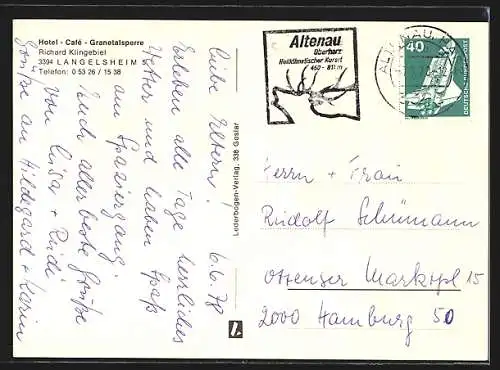 Hotel - Café - Granetalsperre
Richard Klingebiel
3394 LANGELSHEIM
Telefon: 0 53 26 / 15 38
Liebe Eltern! 6.6.78
Erleben alle Tage herrliches
Wetter und haben Spaß
am Spaziergang.
Euch aller beste Grüße
von Luisa + Rudi
Grüße an Hildegard + Karin
Lederbogen-Verlag, 338 Goslar
Altenau
Oberharz
Heilklimatischer Kurort
450 - 811 m
ALTENAU, HA
40
DEUTSCHE BUNDESPOST
Herrn + Frau
Rudolf Schümann
Ottenser Marktpl 15
2000 Hamburg 50